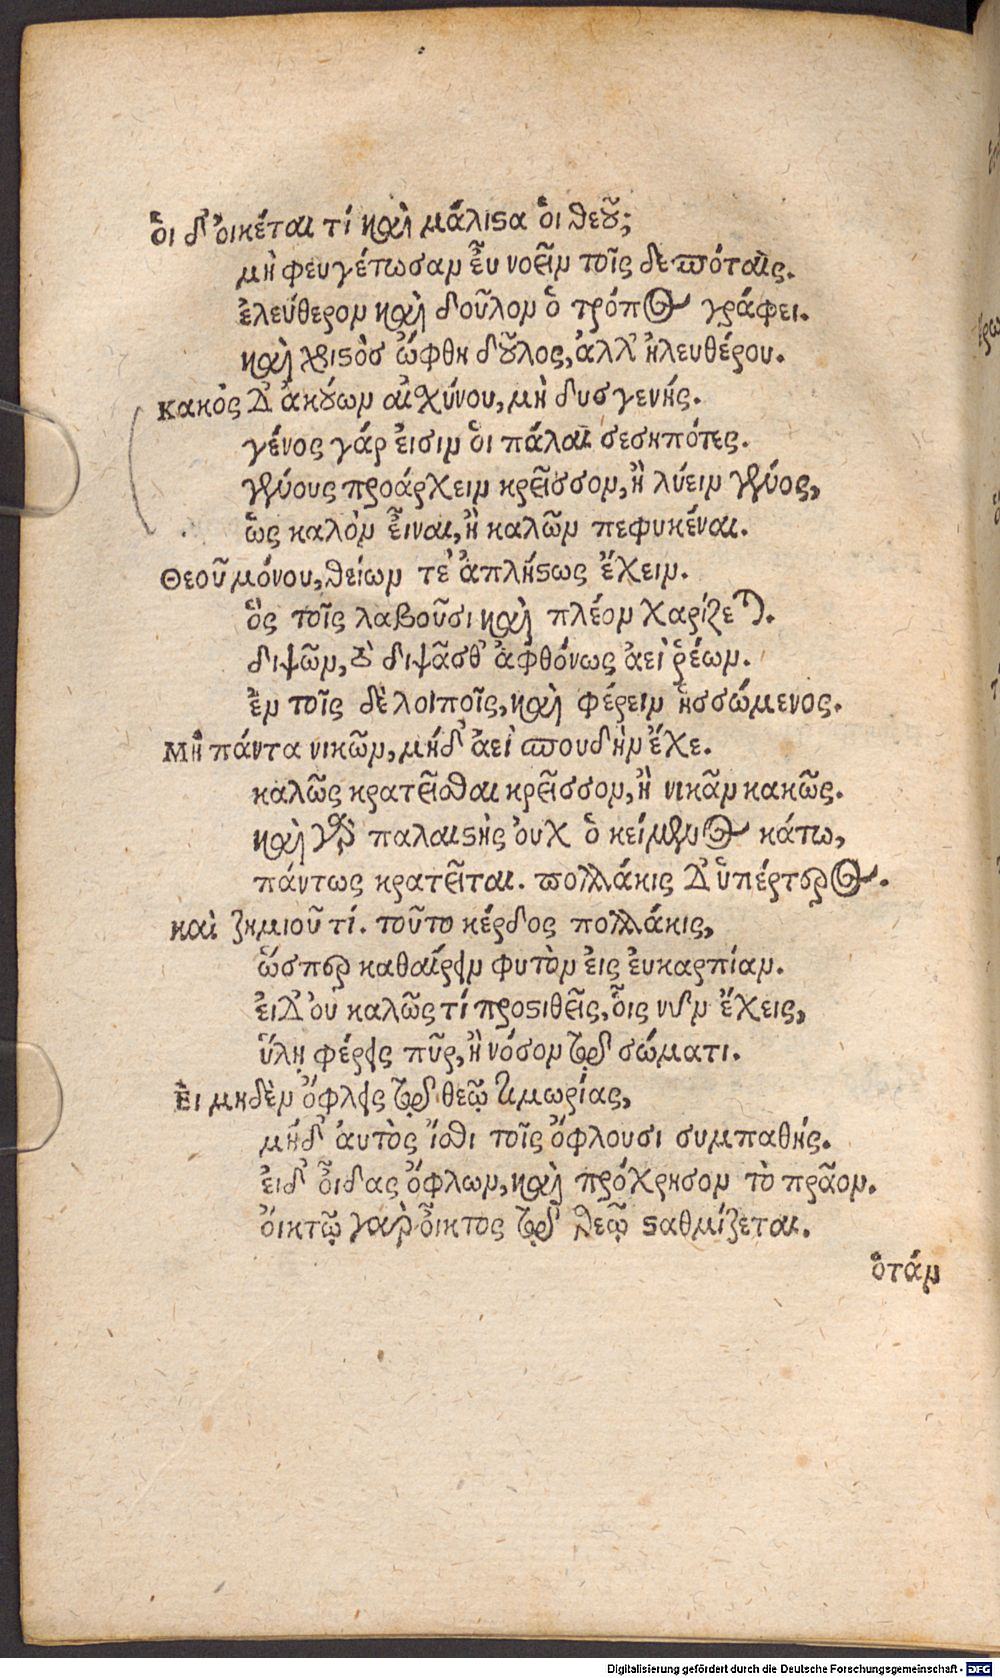 ὃι δ' ὀικέται τί καὶ μάλιϛα ὃι θεοῦ;
μὴ φευγέτωσαν ἐῦ νοεῖν τοῖς δεσπόταις.
ἐλεύθερον καὶ δοῦλον ὁ τρόπος γράφει.
καὶ χριϛὸσ ὤφθη δοῦλος, ἀλλ' ἠλευθέρου.
Κακὸς δ' ἀκούων αἰσχύνου, μὴ δυσγενής.
γένος γάρ ἐισιν ὁι πάλαι σεσηπότες.
γένους προάρχειν κρεῖσσον, ἢ λύειν γένος,
ὣς καλὸν εἶναι, ἢ καλῶν πεφυκέναι.
Θεοῦ μόνου, θείων τὲ ἀπλήϛως ἔχειν.
ὃς τοῖς λαβοῦσι καὶ πλέον χαρίζεται.
διψῶν, οὐ διψᾶσθ' ἀφθόνως ἀεὶ ῥέων.
ἐν τοῖς δὲ λοιποῖς, καὶ φέρειν ἡσσώμενος.
Μὴ πάντα νικῶν, μήδ' ἀεὶ σπουδὴν ἔχε.
καλῶς κρατεῖσθαι κρεῖσσον, ἢ νικᾶν κακῶς.
καὶ γὰρ παλαιϛὴς ὀυχ ὁ κείμενος κάτω,
πάντως κρατεῖται. πολλάκις δ' ὑπέρτερος.
καὶ ζημιοῦ τί. τοῦτο κέρδος πολλάκις,
ὥσπερ καθαίρειν φυτὸν ἐις ἐυκαρπίαν.
ἐι δ' ὀυ καλῶς τί προϛιθεῖς, οἷς νῦν ἔχεις,
ὕλη φέρεις πῦρ, ἢ νόσον τῷ σώματι.
Ἐι μηδὲν ὄφλεις τῷ θεῷ τιμωρίας,
μήδ' ἀυτὸς ἴσθι τοῖς ὄφλουσι συμπαθής.
ἐιδ' οἶδας ὄφλων, καὶ πρόχρησον τὸ πρᾶον.
ὄικτῳ γαρ οἶκτος τῷ θεῷ ϛαθμίζεται.
ὅτάν
Digitalisierung gefördert durch die Deutsche Forschungsgemeinschaft - DFG